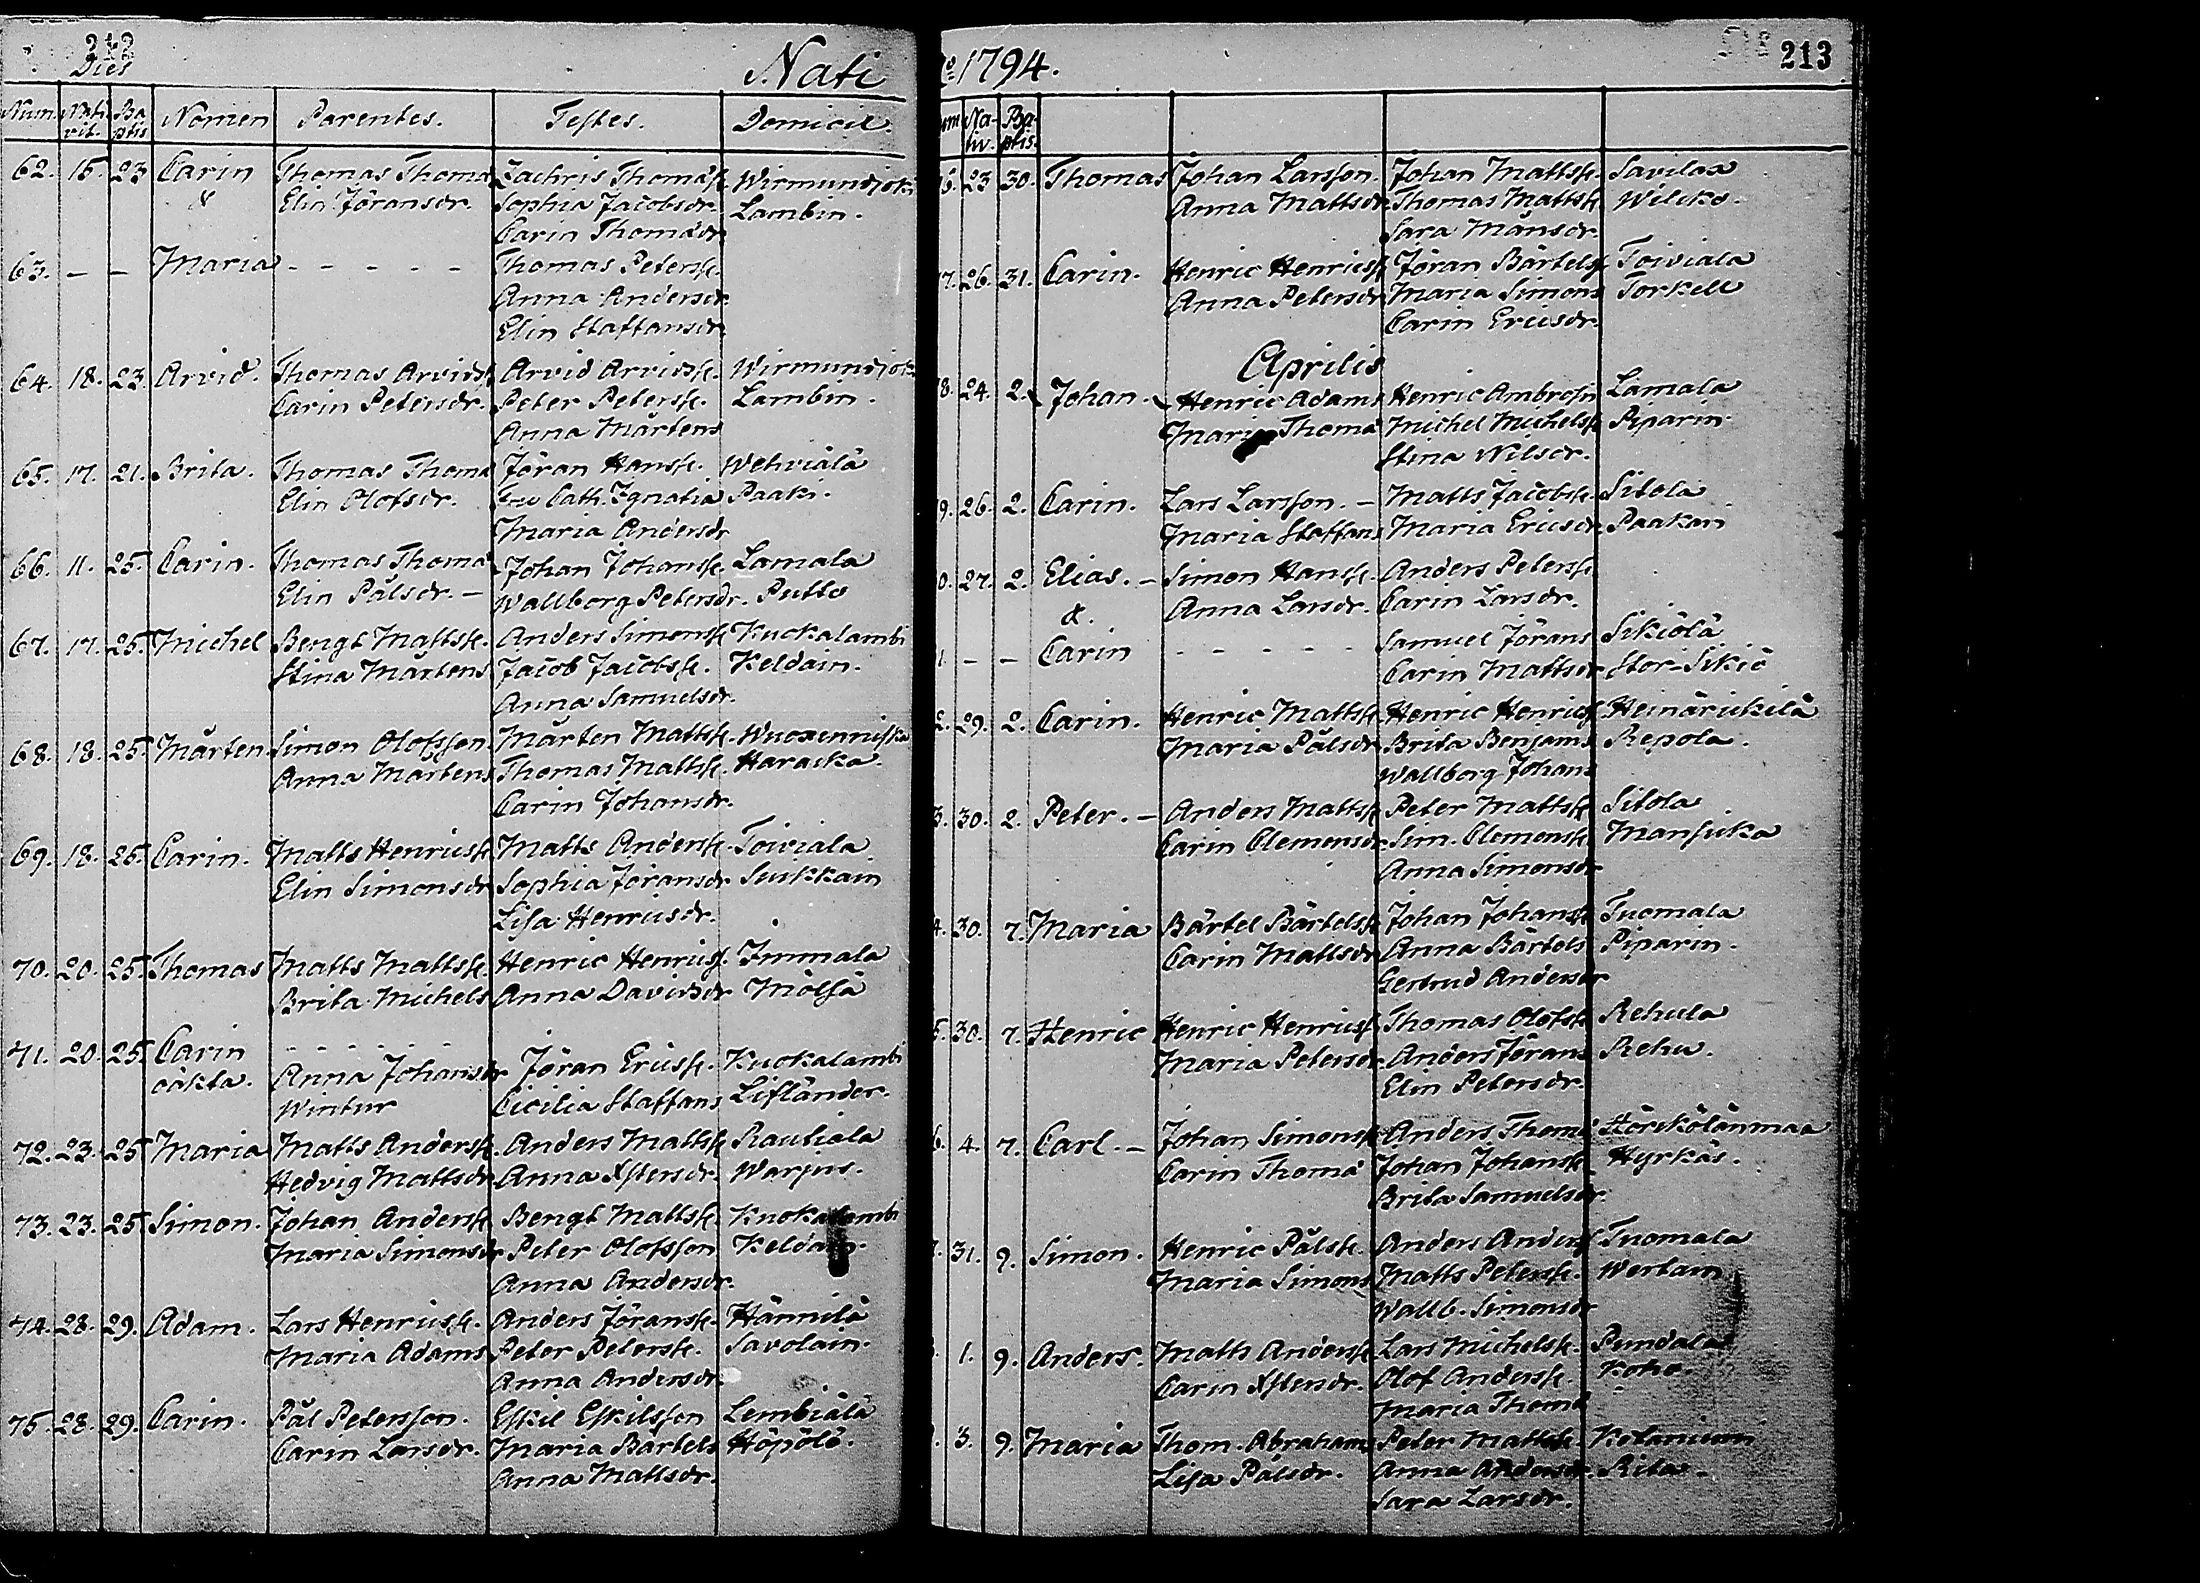 212
Dies
Nati
Num. Nati Ba Nomen Parentes. Testes. Domicil.
vit. ptis
62. 15. 23 Carin Thomas Thomæ Zachris Thomæss. Wirmundjoki
& Elin Jöransdr. Sophia Jacobsdr. Lambin.
Carin Thomædr.
63. – – Maria – – – – – Thomas Peterss.
Anna Andersdr.
Elin Staffansdr.
64. 18. 23. Arvid. Thomas Arvidss. Arvid Arvidss. Wirmundjoki
Carin Petersdr. Peter Peterss. Lambin.
Anna Mårtens
65. 17. 21. Brita. Thomas Thomæ Jöran Hanss. Wehviälä
Elin Olofsdr. Cath. Ignatia Paaki.
Maria Andersdr
66. 11. 25. Carin. Thomas Thomæ Johan Johanss. Lamala
Elin Pålsdr. – Wallborg Petersdr. Putto
67. 17. 25. Michel Bengt Mattss. Anders Simonss. Kuokalambi
Stina Mårtens Jacob Jacobss. Keldain.
Anna Samuelsdr.
68. 18. 25. Mårten. Simon Olofsson Mårten Mattss. Wuoxenniska
Anna Mårtens Thomas Mattss. Haracka.
Carin Johansdr.
69. 18. 25. Carin. Matts Henricss. Matts Anderss. Toiviala
Elin Simonsdr Sophia Jöransdr Suikkain
Lisa Henricsdr.
70. 20. 25. Thomas Matts Mattss. Henric Henricss. Immala
Brita Michels Anna Davidsdr Mölsä
71. 20. 25. Carin – – – – – –
oäkta. Anna Johansdr Jöran Ericss. Kuokalambi
Wintur Cicilia Staffans Lifländer.
72. 23. 25 Maria Matts Anderss. Anders Mattss. Rautiala
Hedvig Mattsdr Anna Xstersdr. Warpus.
73. 23. 25 Simon. Johan Anderss. Bengt Mattss. Kuokalambi
Maria Simonsdr Peter Olofsson Keldain.
Anna Andersdr.
74. 28. 29. Adam. Lars Henricss. Anders Jöranss. Hännilä
Maria Adams Peter Peterss. Savolain.
Anna Andersdr.
75. 28. 29. Carin. Pål Petersson. Eskil Eskilsson Lembiälä
Carin Larsdr. Maria Bartels Höpölö.
Anna Mattsdr.
o 1794. 213
um Na- Ba-
tiv. ptis.
6. 23 30. Thomas Johan Larsson. Johan Mattss. Savilax
Anna Mattsdr. Thomas Mattss. Wilcko.
Sara Månsdr.
7. 26. 31. Carin. Henric Henricss. Jöran Bärtelss. Toiviala
Anna Petersdr Maria Simons Torkell
Carin Ericsdr.
Aprilis
8. 24. 2. Johan. Henric Adams Henric Ambrosn Lamala
Maria Thomæ Michel Michelss. Piparin.
Stina Nilsdr.
9. 26. 2. Carin. Lars Larsson. – Matts Jacobss. Sitola
Maria Staffans Maria Ericsdr. Paakoni
0. 27. 2. Elias. – Simon Hanss. Anders Peterss.
&. Anna Larsdr. Carin Larsdr.
1. – – Carin – – – – – Samuel Jörans Sikiölä
Carin Mattsdr Stor-Sikiö
2. 29. 2. Carin. Henric Mattss. Henric Henricss. Heinärickilä
Maria Pålsdr. Brita Benjams Repola.
Wallborg Johans
3. 30. 2. Peter. – Anders Mattss. Peter Mattss. Sitola
Carin Clemensdr. Sim. Clemenss. Mansicka
Anna Simonsdr
4. 30. 7. Maria Bärtel Bärtelss. Johan Johanss. Tuomala
Carin Mattsdr Anna Bärtels Piparin.
Gertrud Andersdr
5. 30. 7. Henric Henric Henricss. Thomas Olofss. Rehula
Maria Petersdr. Anders Jörans Rehu.
Elin Petersdr.
6. 4. 7. Carl. – Johan Simonss. Anders Thomæ Hörckölänmaa
Carin Thomæ Johan Johanss. Hyrkäs.
Brita Samuelsdr.
7. 31. 9. Simon. Henric Pålss. Anders Anderss. Tuomala
Maria Simons Matts Peterss. Wertain
Wallb. Simonsdr
1. 9. Anders. Matts Anderss. Lars Michelss. Pundala
Carin Xstersdr. Olof Anderss. Koho.
Maria Thomæ
3. 9. Maria Thom. Abrahams Peter Mattss. Kotaniemi
Lisa Pålsdr. Anna Andersdr. Rita.
Sara Larsdr.